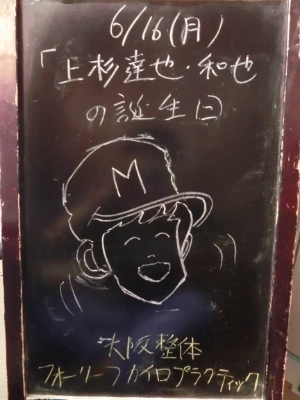 6/16(月)
「上杉達也・和也
の誕生日
M
大阪整体
フォーリーフカイロプラクティック